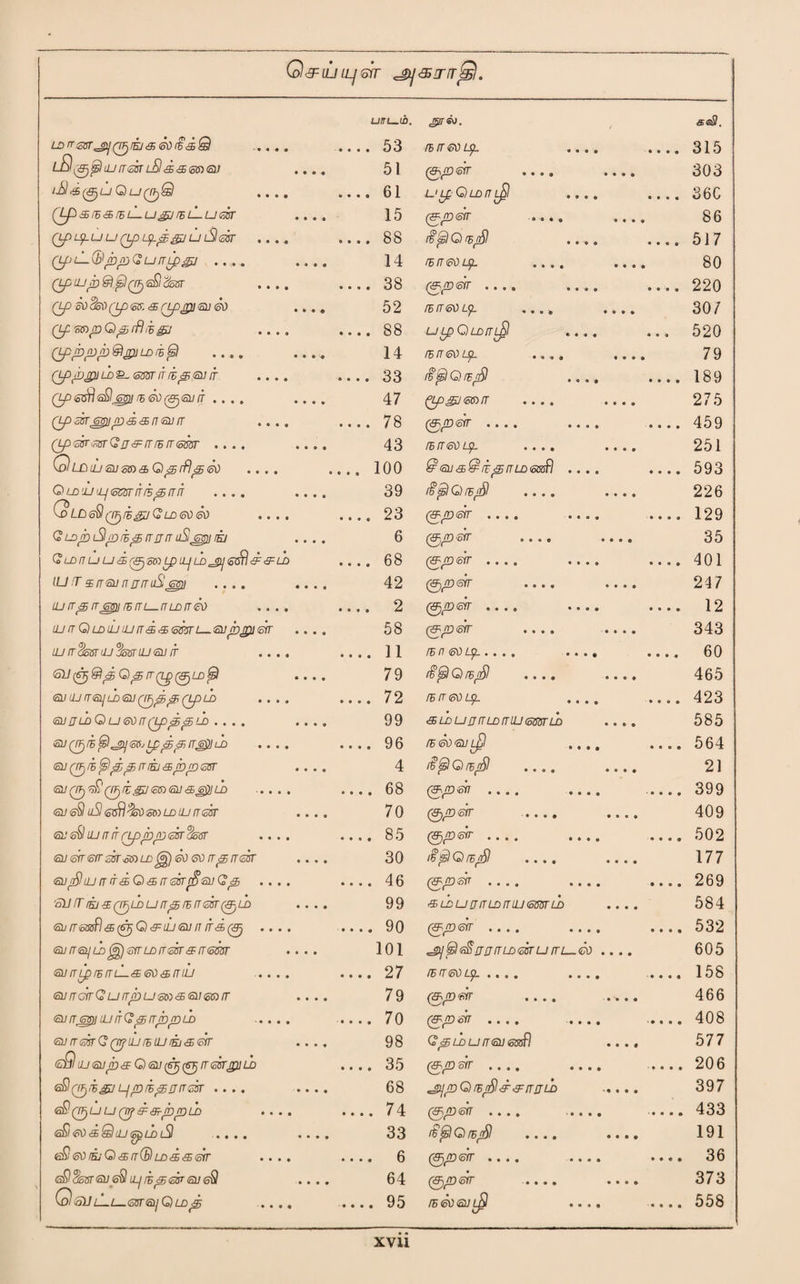 செய்யுள் அகராதி.
பாடம். நூல். கவி.
மான்அருங்கலநீக்கி .... .... 53 நாலடி .... .... 315
மிகுதியான்மிக்கவை .... 51 குறள் .... .... 303
மிக்குப்பெருகி .... .... 61 பழமொழி .... .... 360
முகநகநட்பதுநட்பன் .... 15 குறள் .... .... 86
முடிப்பமுடித்துப்பின் .... .... 88 நீதிநெறி .... .... 517
முட்டுற்றபோழ்து .... .... 14 நாலடி .... .... 80
முயற்சிதிருவினை .... .... 38 குறள் .... .... 220
முல்லைமுகைமுறுவல் .... 52 நாலடி .... .... 307
முறைதெரிந்து .... .... 88 பழமொழி .... .... 520
முற்றற்சிறுமந்தி .... .... 14 நாலடி .... .... 79
முற்றுமுணர்ந்தவர் .... .... 33 நீதிநெறி .... .... 189
முனிவினுநல்குவர் .... .... 47 மூதுரை .... .... 275
முன்னுறக்காவா .... .... 78 குறள் .... .... 459
முன்னரேசாநாண் .... .... 43 நாலடி .... .... 251
மெய்வகைதெரிதல் .... .... 100 சிவகசிந்தாமணி .... .... 593
மெய்யுணர்ந்தார் .... .... 39 நீதிநெறி .... .... 226
மேலிருந்துமேலல் .... .... 23 குறள் .... .... 129
மேற்பிறந்தாராயினும் .... 6 குறள் .... .... 35
மோப்பக்குழையும்அனிச்சம் .... 68 குறள் .... .... 401
யாகாவாராயினு .... .... 42 குறள் .... .... 247
யாதானுநாடாமால் .... .... 2 குறள் .... .... 12
யாமெய்யாக்கண்டவற்றுள் .... 58 குறள் .... .... 343
யானையனையவர் .... .... 11 நாலடி .... .... 60
வஞ்சித்தொழுகுமதி .... 79 நீதிநெறி .... .... 465
வயாவும்வருத்தமும் .... .... 72 நாலடி .... .... 423
வரம்பெலாமுத்தம் .... .... 99 கம்பராமாயணம் .... 585
வருந்திஅழைத்தாலும் .... .... 96 நல்வழி .... .... 564
வருந்தித்தாங்கற்றன .... 4 நீதிநெறி .... .... 21
வருவிருந்துவைகலும் .... .... 68 குறள் .... .... 399
வலியினிலைமையான் .... 70 குறள் .... .... 409
வலியார்முற்றன்னை .... .... 85 குறள் .... .... 502
வள்ளன்மைஇல்லாதான் .... 30 நீதிநெறி .... .... 177
வறியார்க்கொன்றீவதே .... .... 46 குறள் .... .... 269
வாங்கரும்பாதநான்கும் .... 99 கம்பராமாயணம் .... 584
வாணிகஞ்செய்வார்க்கு .... .... 90 குறள் .... .... 532
வாவும்இளமான்காண் .... 101 அதிவீரராமன்பாடல் .... 605
வாழ்நாட்கலகாய் .... .... 27 நாலடி .... .... 158
வாள்போற்பகைவரை .... 79 குறள் .... .... 466
வானுயர்தோற்றம் .... .... 70 குறள் .... .... 408
.... 98 தேம்பாவணி .... 577
வியவற்கவெஞ்ஞான்றும் .... 35 குறள் .... .... 206
விருந்துபுறந்தரான் .... .... 68 அறநெறிச்சாரம் .... 397
விருப்பறாச்சுற்றம் .... .... 74 குறள் .... .... 433
விலக்கியவோம்பி .... .... 33 நீதிநெறி .... .... 191
விலங்கொடுமக்கள் .... .... 6 குறள் .... .... 36
வினைவலியுந்தன்வலி .... 64 குறள் .... .... 373
வெட்டனவுமெத .... .... 95 நல்வழி .... .... 558
xvii